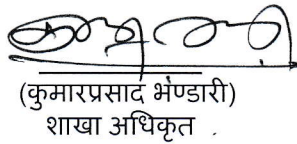 (कुमारप्रसाद भण्डारी)
शाखा अधिकृत .